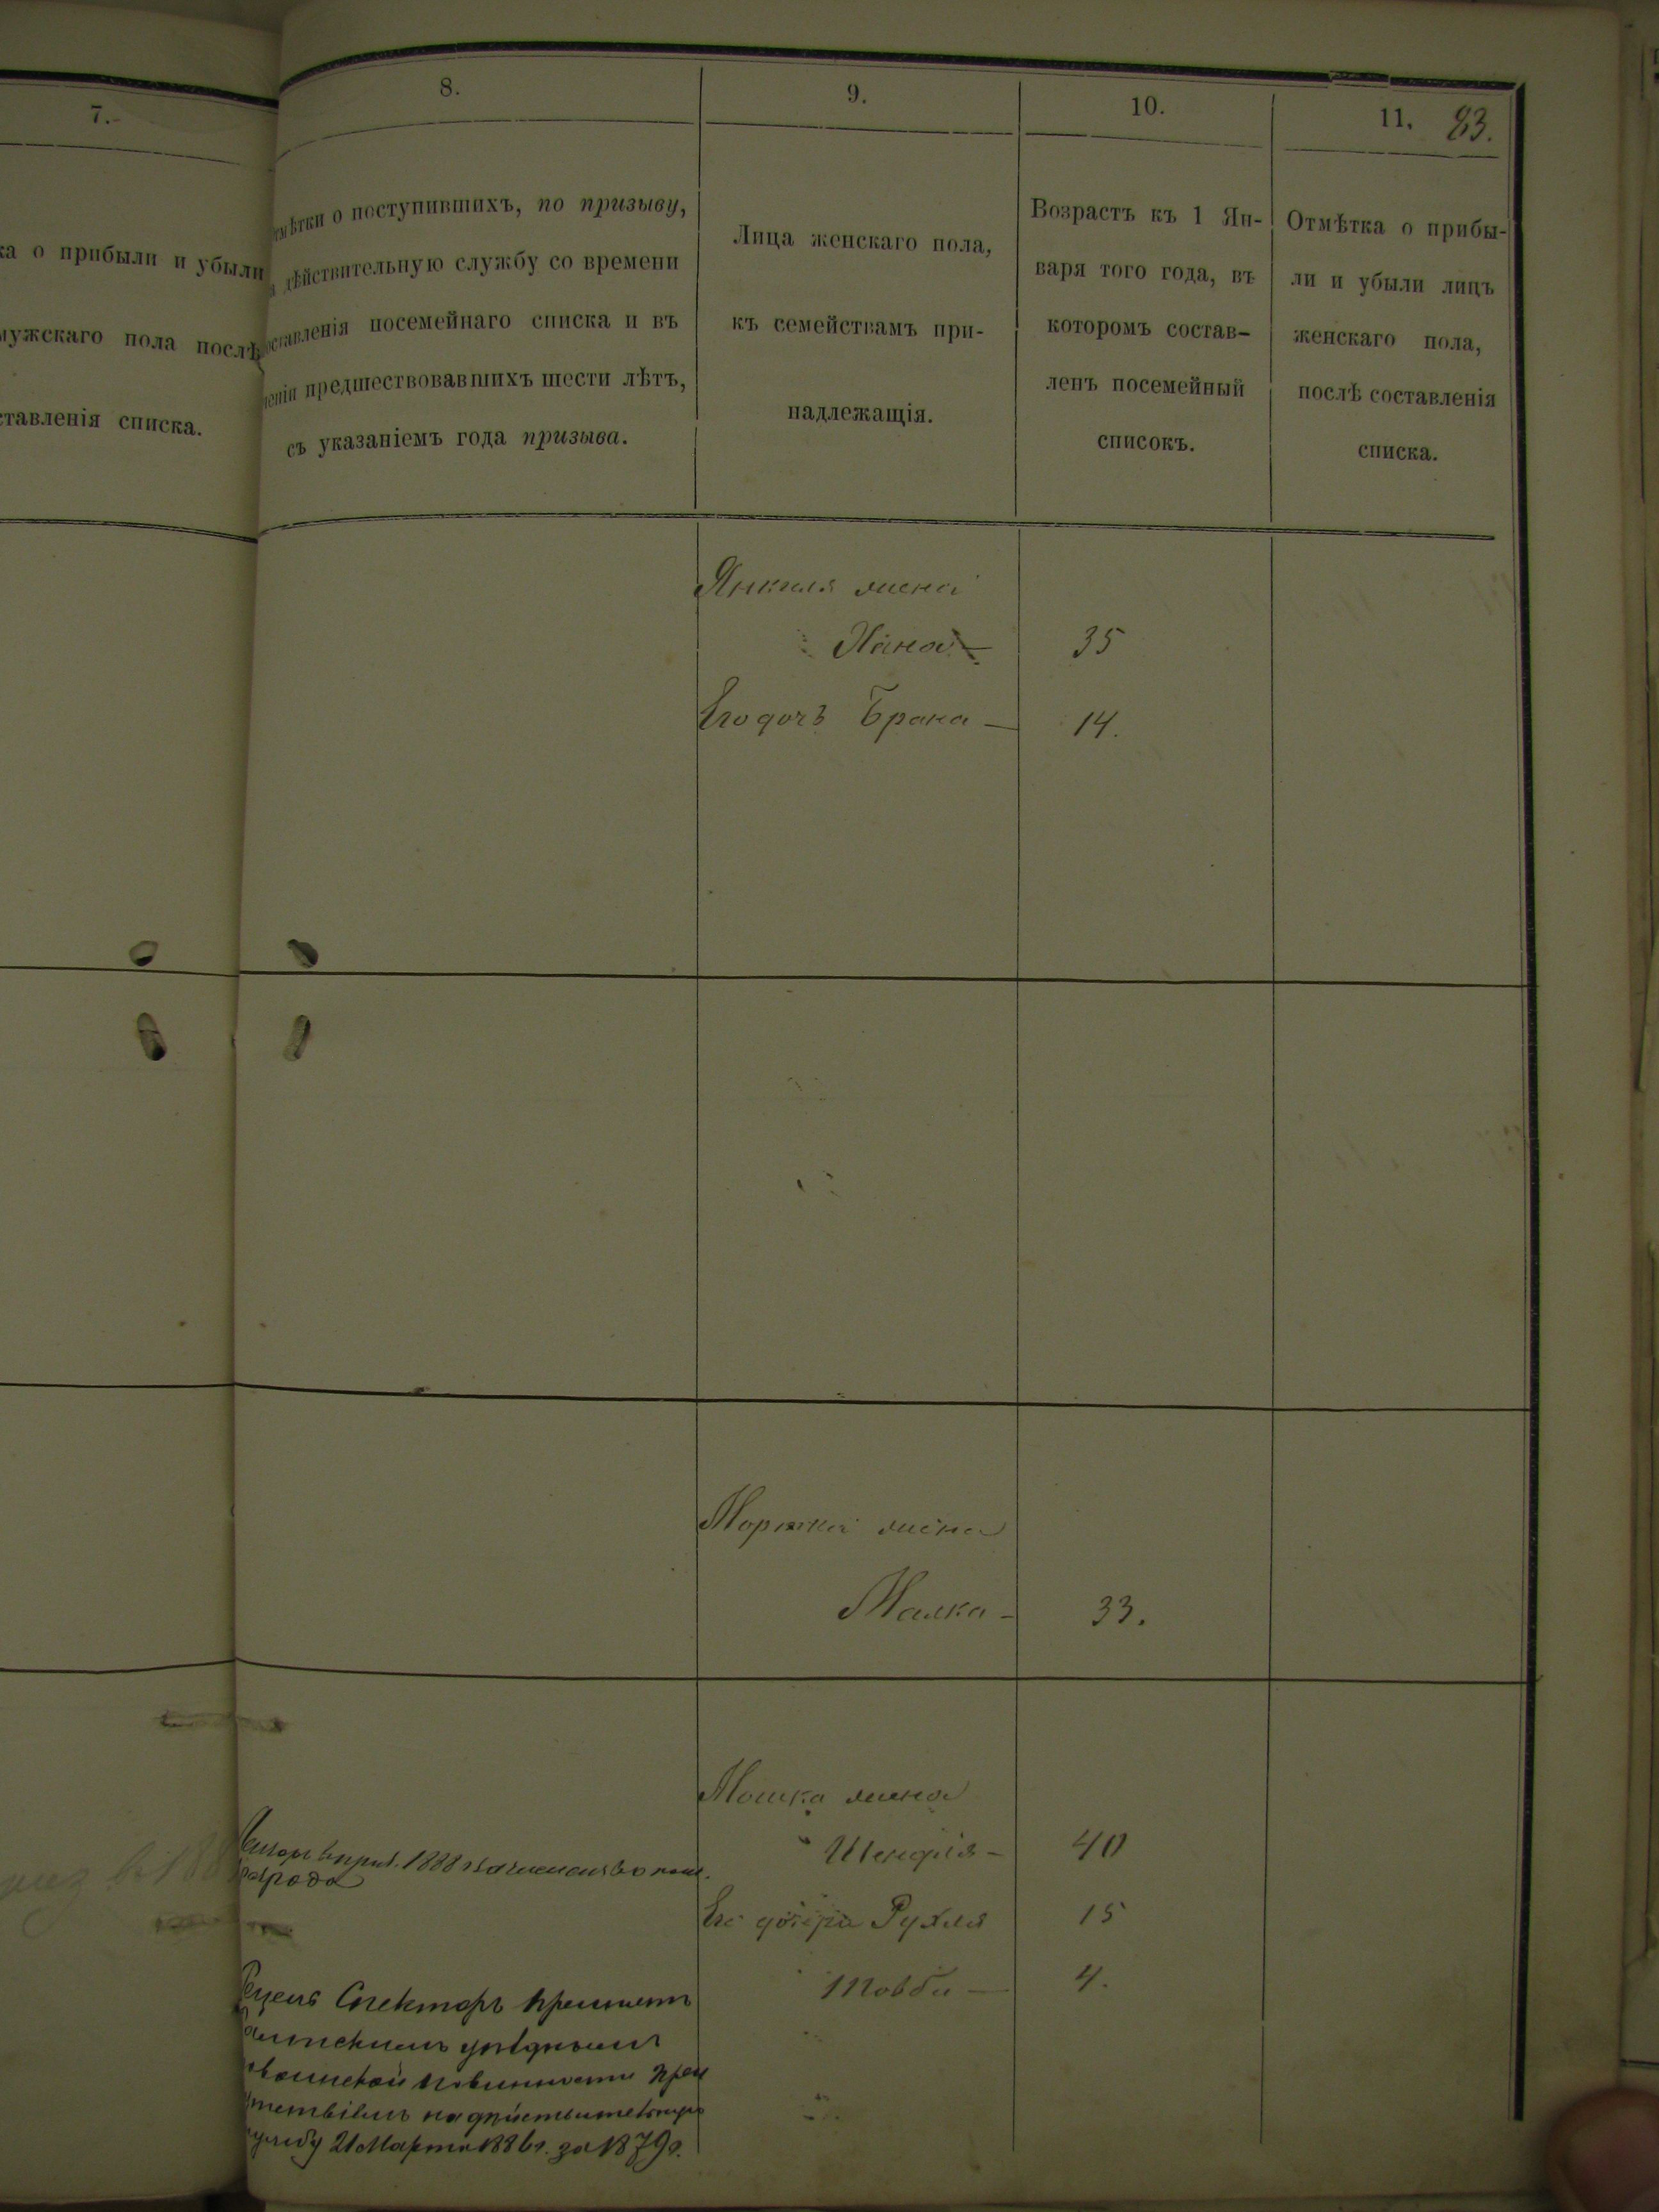 7.
о прибыли и убыли
мужскаго пола послѣ
списка.
8.
о поступившихъ, по призыву,
дѣйствительную службу со времени
составленія посемейнаго списка и въ
предшествовавшихъ шести лѣтъ,
съ указаніемъ года призыва.
9.
Лица женскаго пола,
къ семействамъ при-
надлежащія.
10.
Возрастъ къ 1 Ян-
варя того года, въ
которомъ состав-
ленъ посемейный
списокъ.
11. 83.
Отмѣтка о прибы-
ли и убыли лицъ
женскаго пола,
послѣ составленія
списка.
Янкеля жена
Хана — 35
Его дочь Брана — 14.
жена
Малка — 33.
Мошка жена
1888
Шендля — 40
разряда
Его дочери Рухля 15
Товба — 4.
Спекторъ принятъ
уѣзднымъ
воинской повинности
на дѣйствительную
службу 21 Марта 1886 г. за 1879 г.